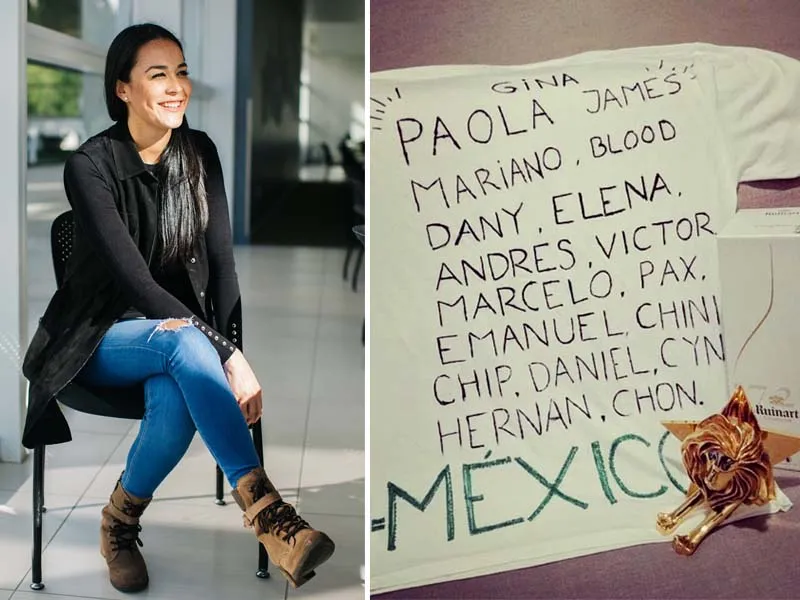 GINA
PAOLA JAMES
MARIANO, BLOOD
DANY, ELENA,
ANDRES, VICTOR
MARCELO, PAX,
EMANUEL, CHINI
CHIP, DANIEL, CYN
HERNAN, CHON.
=MÉXICO
Ruinart